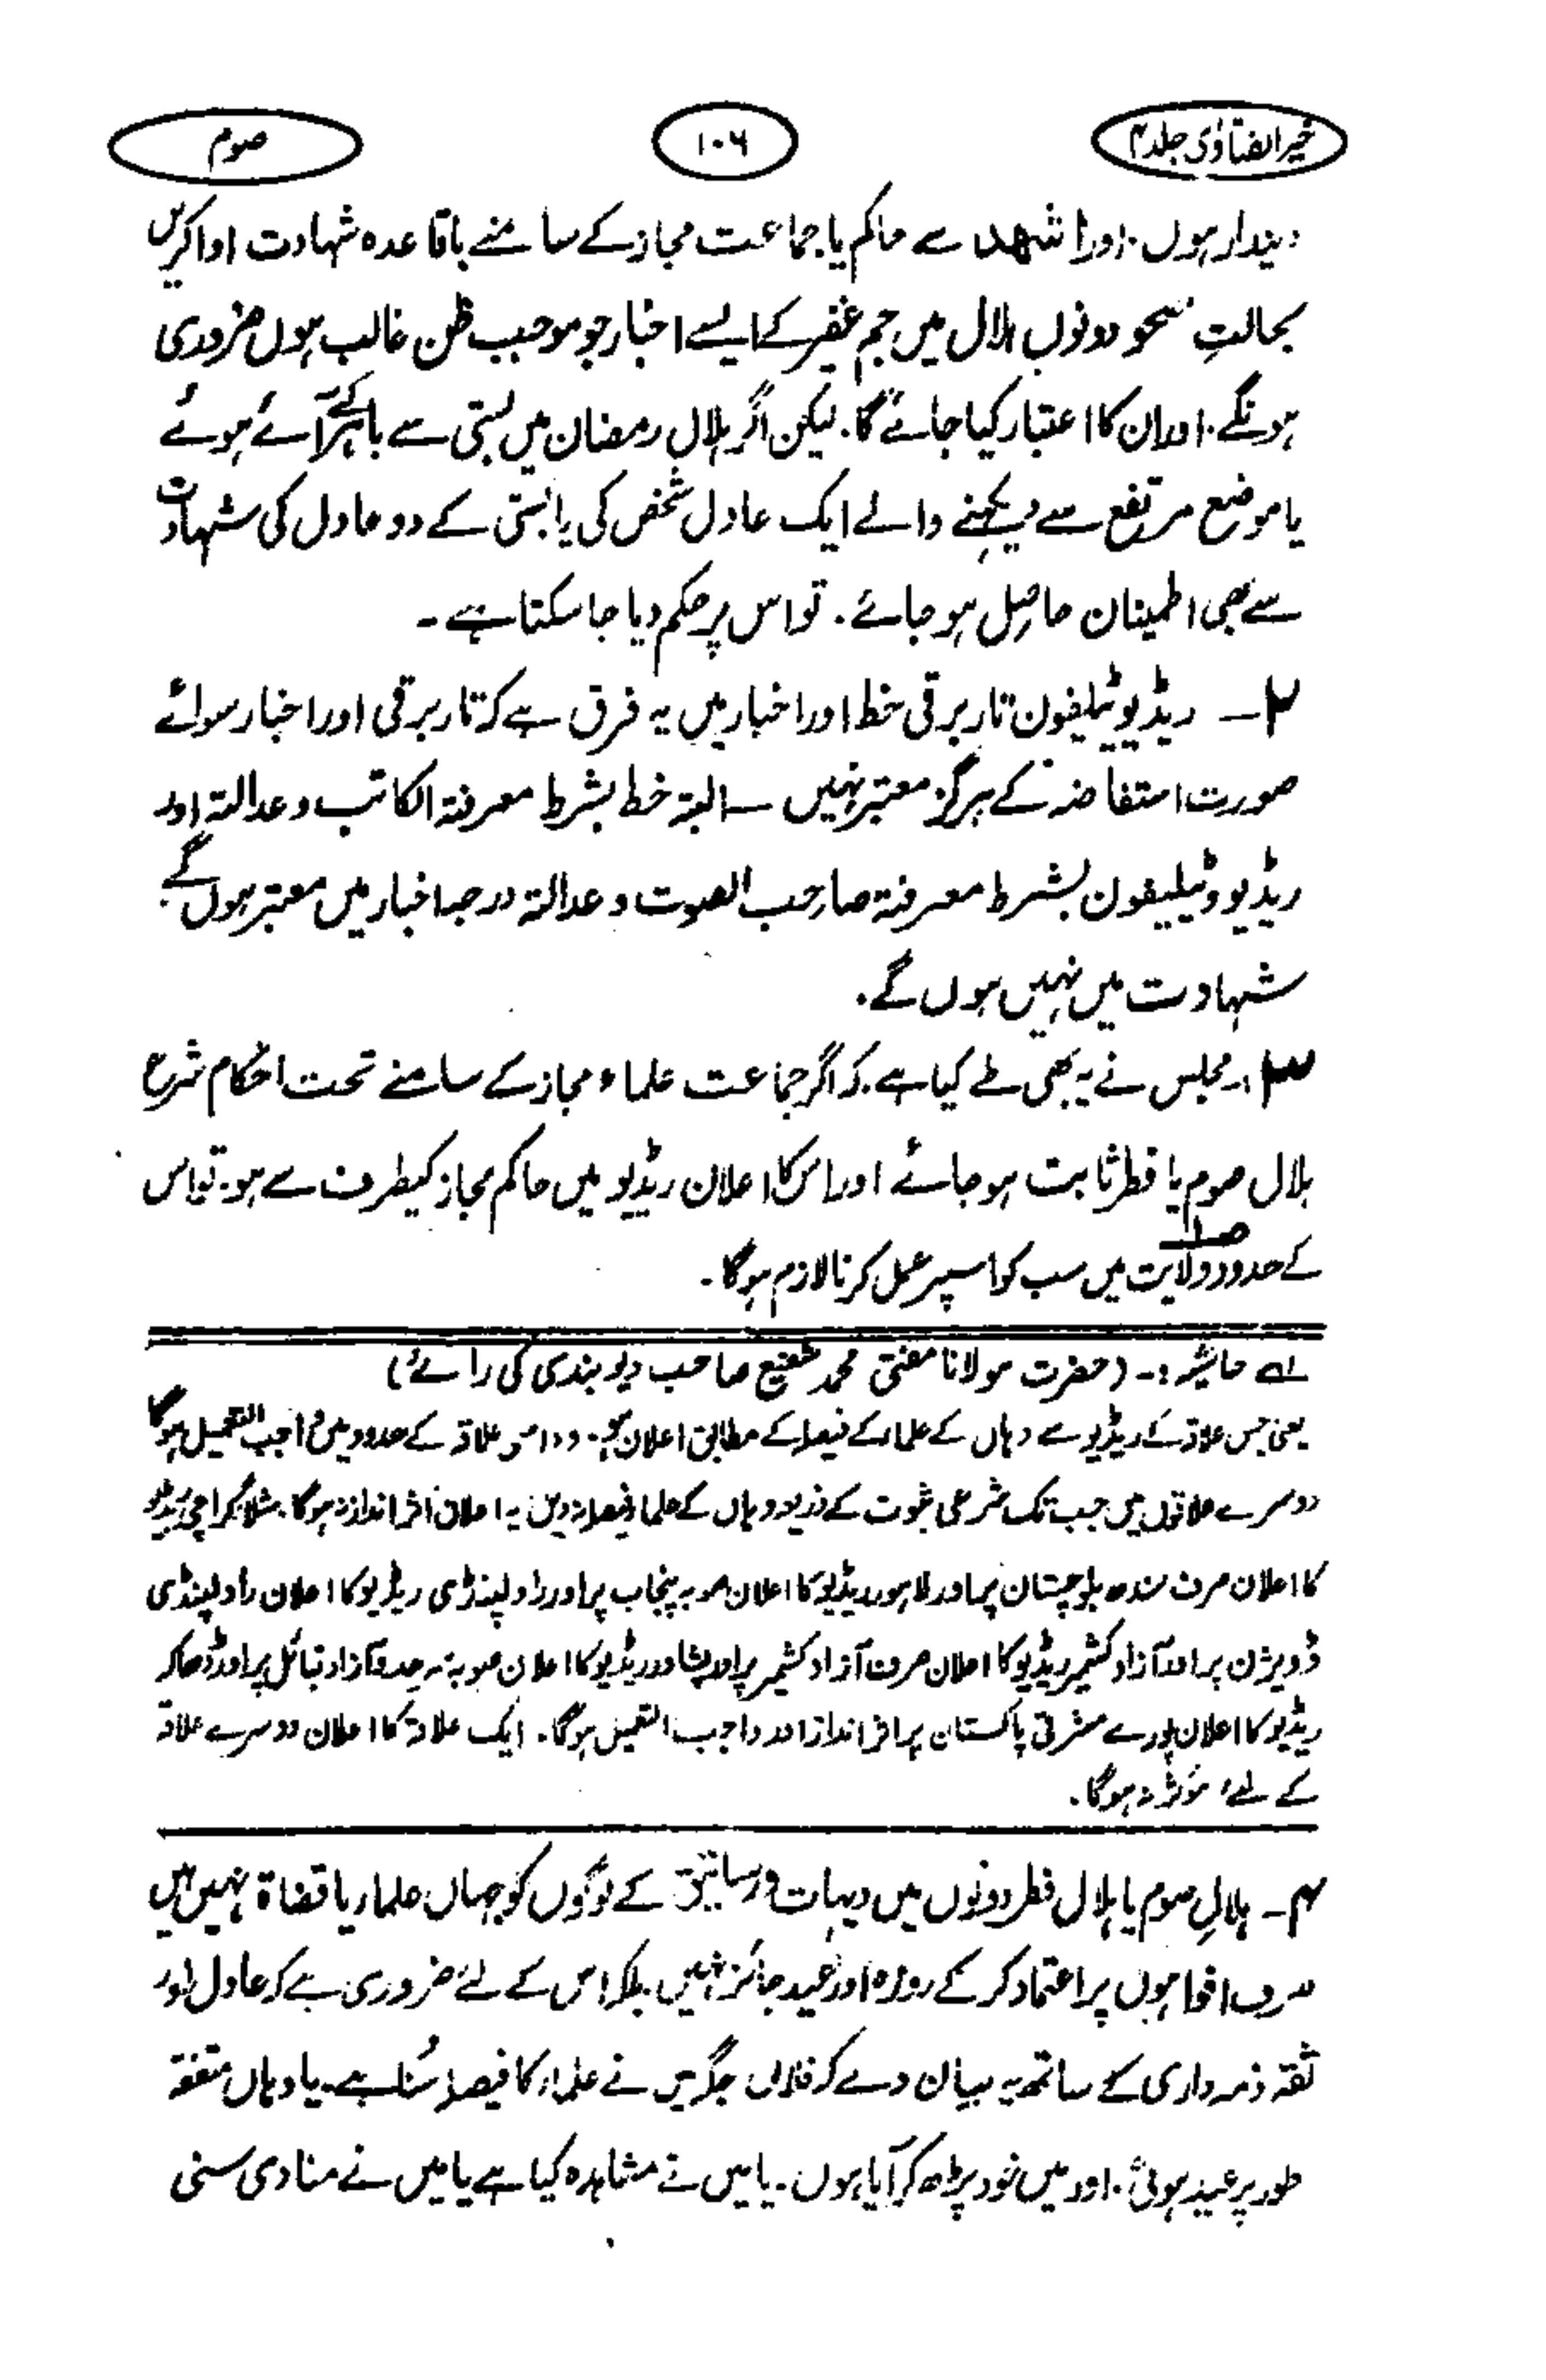 خیر الفتاوٰی جلد ۴
۱۰۶
صوم
دیندار ہوں۔ اور اشھد سے حاکم یا جماعت مجاز کے سامنے باقاعدہ شہادت ادا کریں
بحالتِ صحو دونوں ہلال میں جم غفیر کے ایسے اخبار جو موجب ظن غالب ہوں ضروری
ہونگے۔ اور ان کا اعتبار کیا جائے گا۔ لیکن اگر ہلالِ رمضان میں بستی سے باہر کے آئے ہوئے
یا موضع مرتفع سے دیکھنے والے ایک عادل شخص کی یا بستی کے دو عادل کی شہادت
سے بھی اطمینان حاصل ہو جائے۔ تو اس پر حکم دیا جا سکتا ہے ۔
۲۔ ریڈیو ٹیلیفون تار برقی خط اور اخبار میں یہ فرق ہے کہ تار برقی اور اخبار سوائے
صورت استفاضہ کے ہرگز معتبر نہیں ــ البتہ خط بشرط معرفۃ الکاتب و عدالتہ اور
ریڈیو و ٹیلیفون بشرط معرفۃ صاحب الصوت و عدالتہ درجہ اخبار میں معتبر ہوں گے۔
شہادت میں نہیں ہوں گے۔
۳۔ مجلس نے یہ بھی طے کیا ہے۔ کہ اگر جماعت علماء مجاز کے سامنے تحت احکام شرع
ہلال صوم یا فطر ثابت ہو جائے اور اس کا اعلان ریڈیو میں حاکم مجاز کیطرف سے ہو۔ تو اس
کے حدود ولایت میں سب کو اسپر عمل کرنا لازم ہوگا۔
لے حاشیہ :۔ (حضرت مولانا مفتی محمد شفیع صاحب دیوبندی کی رائے)
یعنی جس علاقہ کے ریڈیو سے وہاں کے علماء کے فیصلہ کے مطابق اعلان ہو۔ وہ اس علاقہ کے حدود میں واجب التعمیل ہوگا
دوسرے علاقوں میں جب تک شرعی ثبوت کے ذریعہ وہاں کے علما فیصلہ نہ دیں یہ اعلان اثر انداز نہ ہوگا۔ مثلاً کراچی ریڈیو
کا اعلان صرف سندھ بلوچستان پر اور لاہور ریڈیو کا اعلان صوبہ پنجاب پر اور راولپنڈی ریڈیو کا اعلان راولپنڈی
ڈویژن پر اور آزاد کشمیر ریڈیو کا اعلان صرف آزاد کشمیر پر اور پشاور ریڈیو کا اعلان صوبہ سرحد و آزاد قبائل پر اور ڈھاکہ
ریڈیو کا اعلان پورے مشرقی پاکستان پر اثر انداز اور واجب التعمیل ہوگا۔ ایک علاقہ کا اعلان دوسرے علاقہ
کے لئے مؤثر نہ ہوگا۔
۴۔ ہلالِ صوم یا ہلال فطر دونوں میں دیہات و رساتیق کے لوگوں کو جہاں علماء یا قضاۃ نہیں ہیں
صرف افواہوں پر اعتماد کر کے روزہ اور عید جائز نہیں بلکہ اس کے لئے ضروری ہے کہ عادل اور
ثقہ ذمہ داری کے ساتھ یہ بیان دے کہ فلاں جگہ میں نے علماء کا فیصلہ سُنا ہے۔ یا وہاں متفقہ
طور پر عید ہوئی۔ اور میں خود پڑھ کر آیا ہوں۔ یا میں نے مشاہدہ کیا ہے یا میں نے منادی سنی